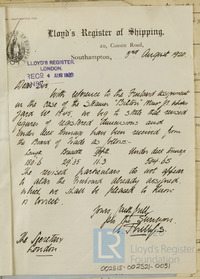 Lloyd's Register of Shipping,
20, Canute Road,
Southampton, 3rd August 1920
LLOYD'S REGISTER
LONDON.
REC'D 4 AUG 1920
Dear Sir
With reference to the Freeboard assignment
in the case of the Steamer
yard No I beg to state that revised
figures of registered dimensions and
under deck tonnage have been received from
the Board of Trade as follows:-
Length Breadth Depth Under deck tonnage
116.6 11.3
The revised particulars do not appear
to alter the freeboard already assigned
which we shall be pleased to know
is correct.
Yours faithfully
The Secretary
London
002515-002521-0031
Lloyd's Register
Foundation